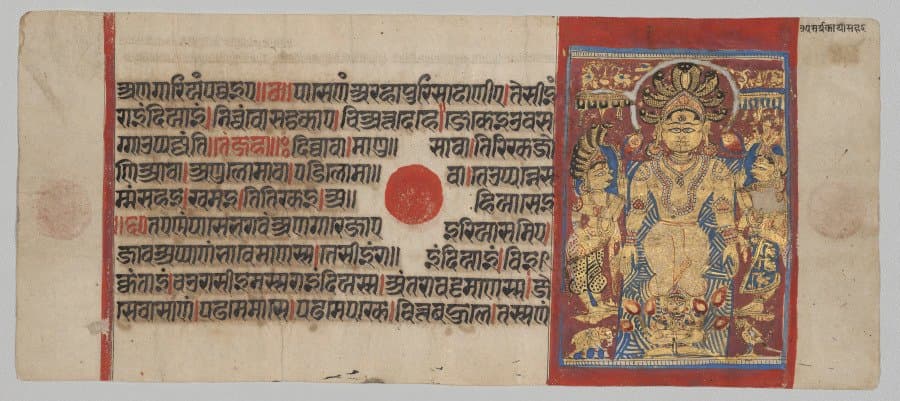 अणगारियं पव्वइए॥ पासे णं अरहा पुरिसादाणीए। तेसीइं
राइंदियाइं। निच्चं वोसट्ठकाए। चियत्तदेहे। जे केइ उवस
ग्गा उप्पज्जंति। तंजहा॥ दिव्वा वा। माणु॥ सा वा। तिरिक्खजो
णिआ वा। अणुलोमा वा। पडिलोमा॥ वा। ते उप्पन्ने स
म्मं सहइ। खमइ। तितिक्खइ। अ॥ हियासेइ
॥ तए णं से पासे भगवं अणगारे जाए इरियासमिए।
जाव अप्पाणं भावेमाणस्स। तेसीइं रा॥ इंदियाइं। विइ
क्कंताइं। चउरासीइमस्स राइंदियस्स। अंतरा वट्टमाणस्स। जे
से गिम्हाणं। पढमे मासे। पढमे पक्खे। चित्तबहुले। तस्स णं